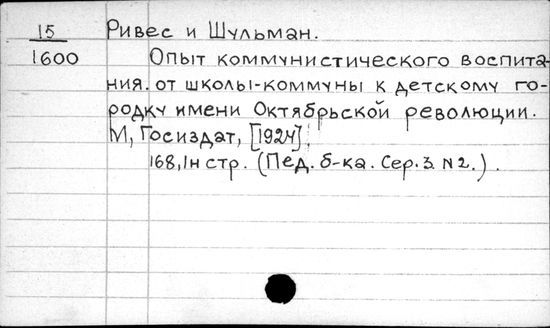 15 Ривес и Шульман.
1600 Опыт коммунистического воспита-
ния. от школы-коммуны к детскому го-
родку имени Октябрьской революции.
М, Госиздат, [1924].
168, 1н стр. (Пед. б-ка. Сер. 3. N 2.).